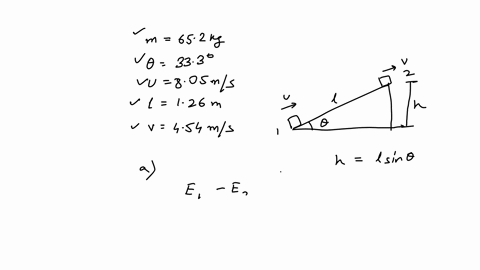 ✓ m = 65.2 kg
✓ θ = 33.3°
✓ u = 8.05 m/s
✓ l = 1.26 m
✓ v = 4.54 m/s
u
l
θ
1
v
2
h
h = l sinθ
a)
E₁ - E₂